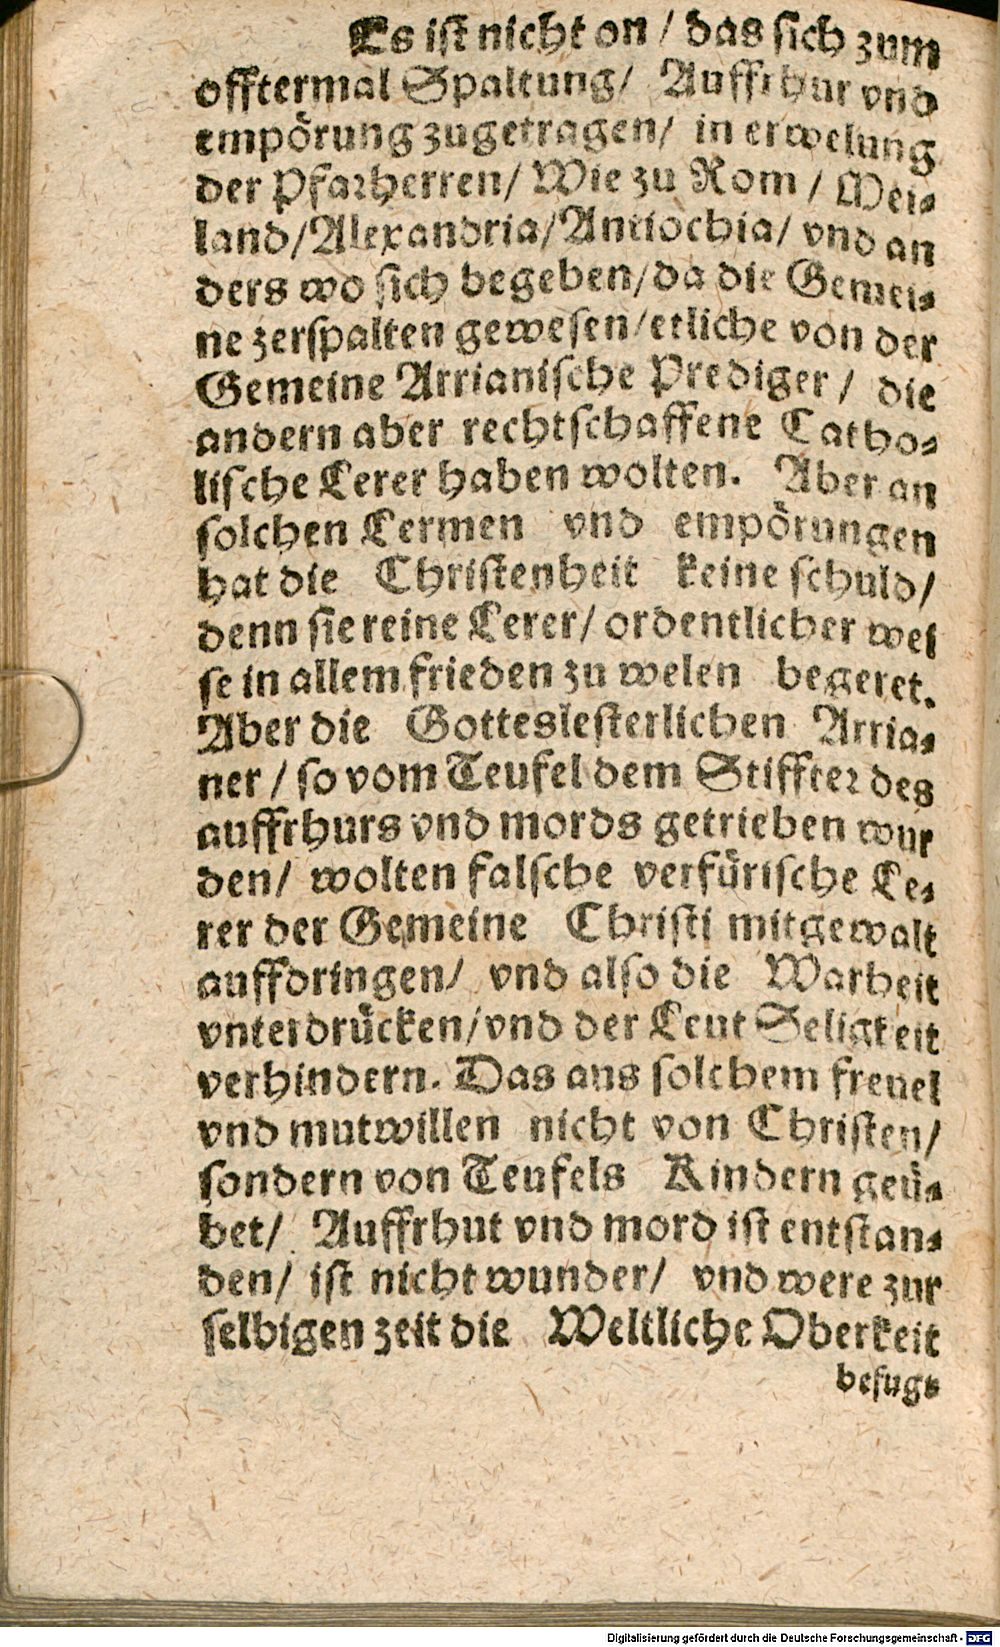 Es ist nicht on / das sich zum
offtermal Spaltung/ Auffrhur vnd
empörung zugetragen/ in erwelung
der Pfarherren/ Wie zu Rom / Mei-
land/Alexandria/Antiochia/ vnd an
ders wo sich begeben/da die Gemei-
ne zerspalten gewesen/etliche von der
Gemeine Arrianische Prediger / die
andern aber rechtschaffene Catho-
lische Lerer haben wolten. Aber an
solchen Lermen vnd empörungen
hat die Christenheit keine schuld/
denn sie reine Lerer/ ordentlicher wei
se in allem frieden zu welen begeret.
Aber die Gotteslesterlichen Arria-
ner / so vom Teufel dem Stiffter des
auffrhurs vnd mords getrieben wur
den/ wolten falsche verfürische Le-
rer der Gemeine Christi mit gewalt
auffdringen/ vnd also die Warheit
vnterdrücken/vnd der Leut Seligkeit
verhindern. Das aus solchem freuel
vnd mutwillen nicht von Christen/
sondern von Teufels Kindern geü-
bet/ Auffrhut vnd mord ist entstan-
den/ ist nicht wunder/ vnd were zur
selbigen zeit die Weltliche Oberkeit
befugt
Digitalisierung gefördert durch die Deutsche Forschungsgemeinschaft - DFG